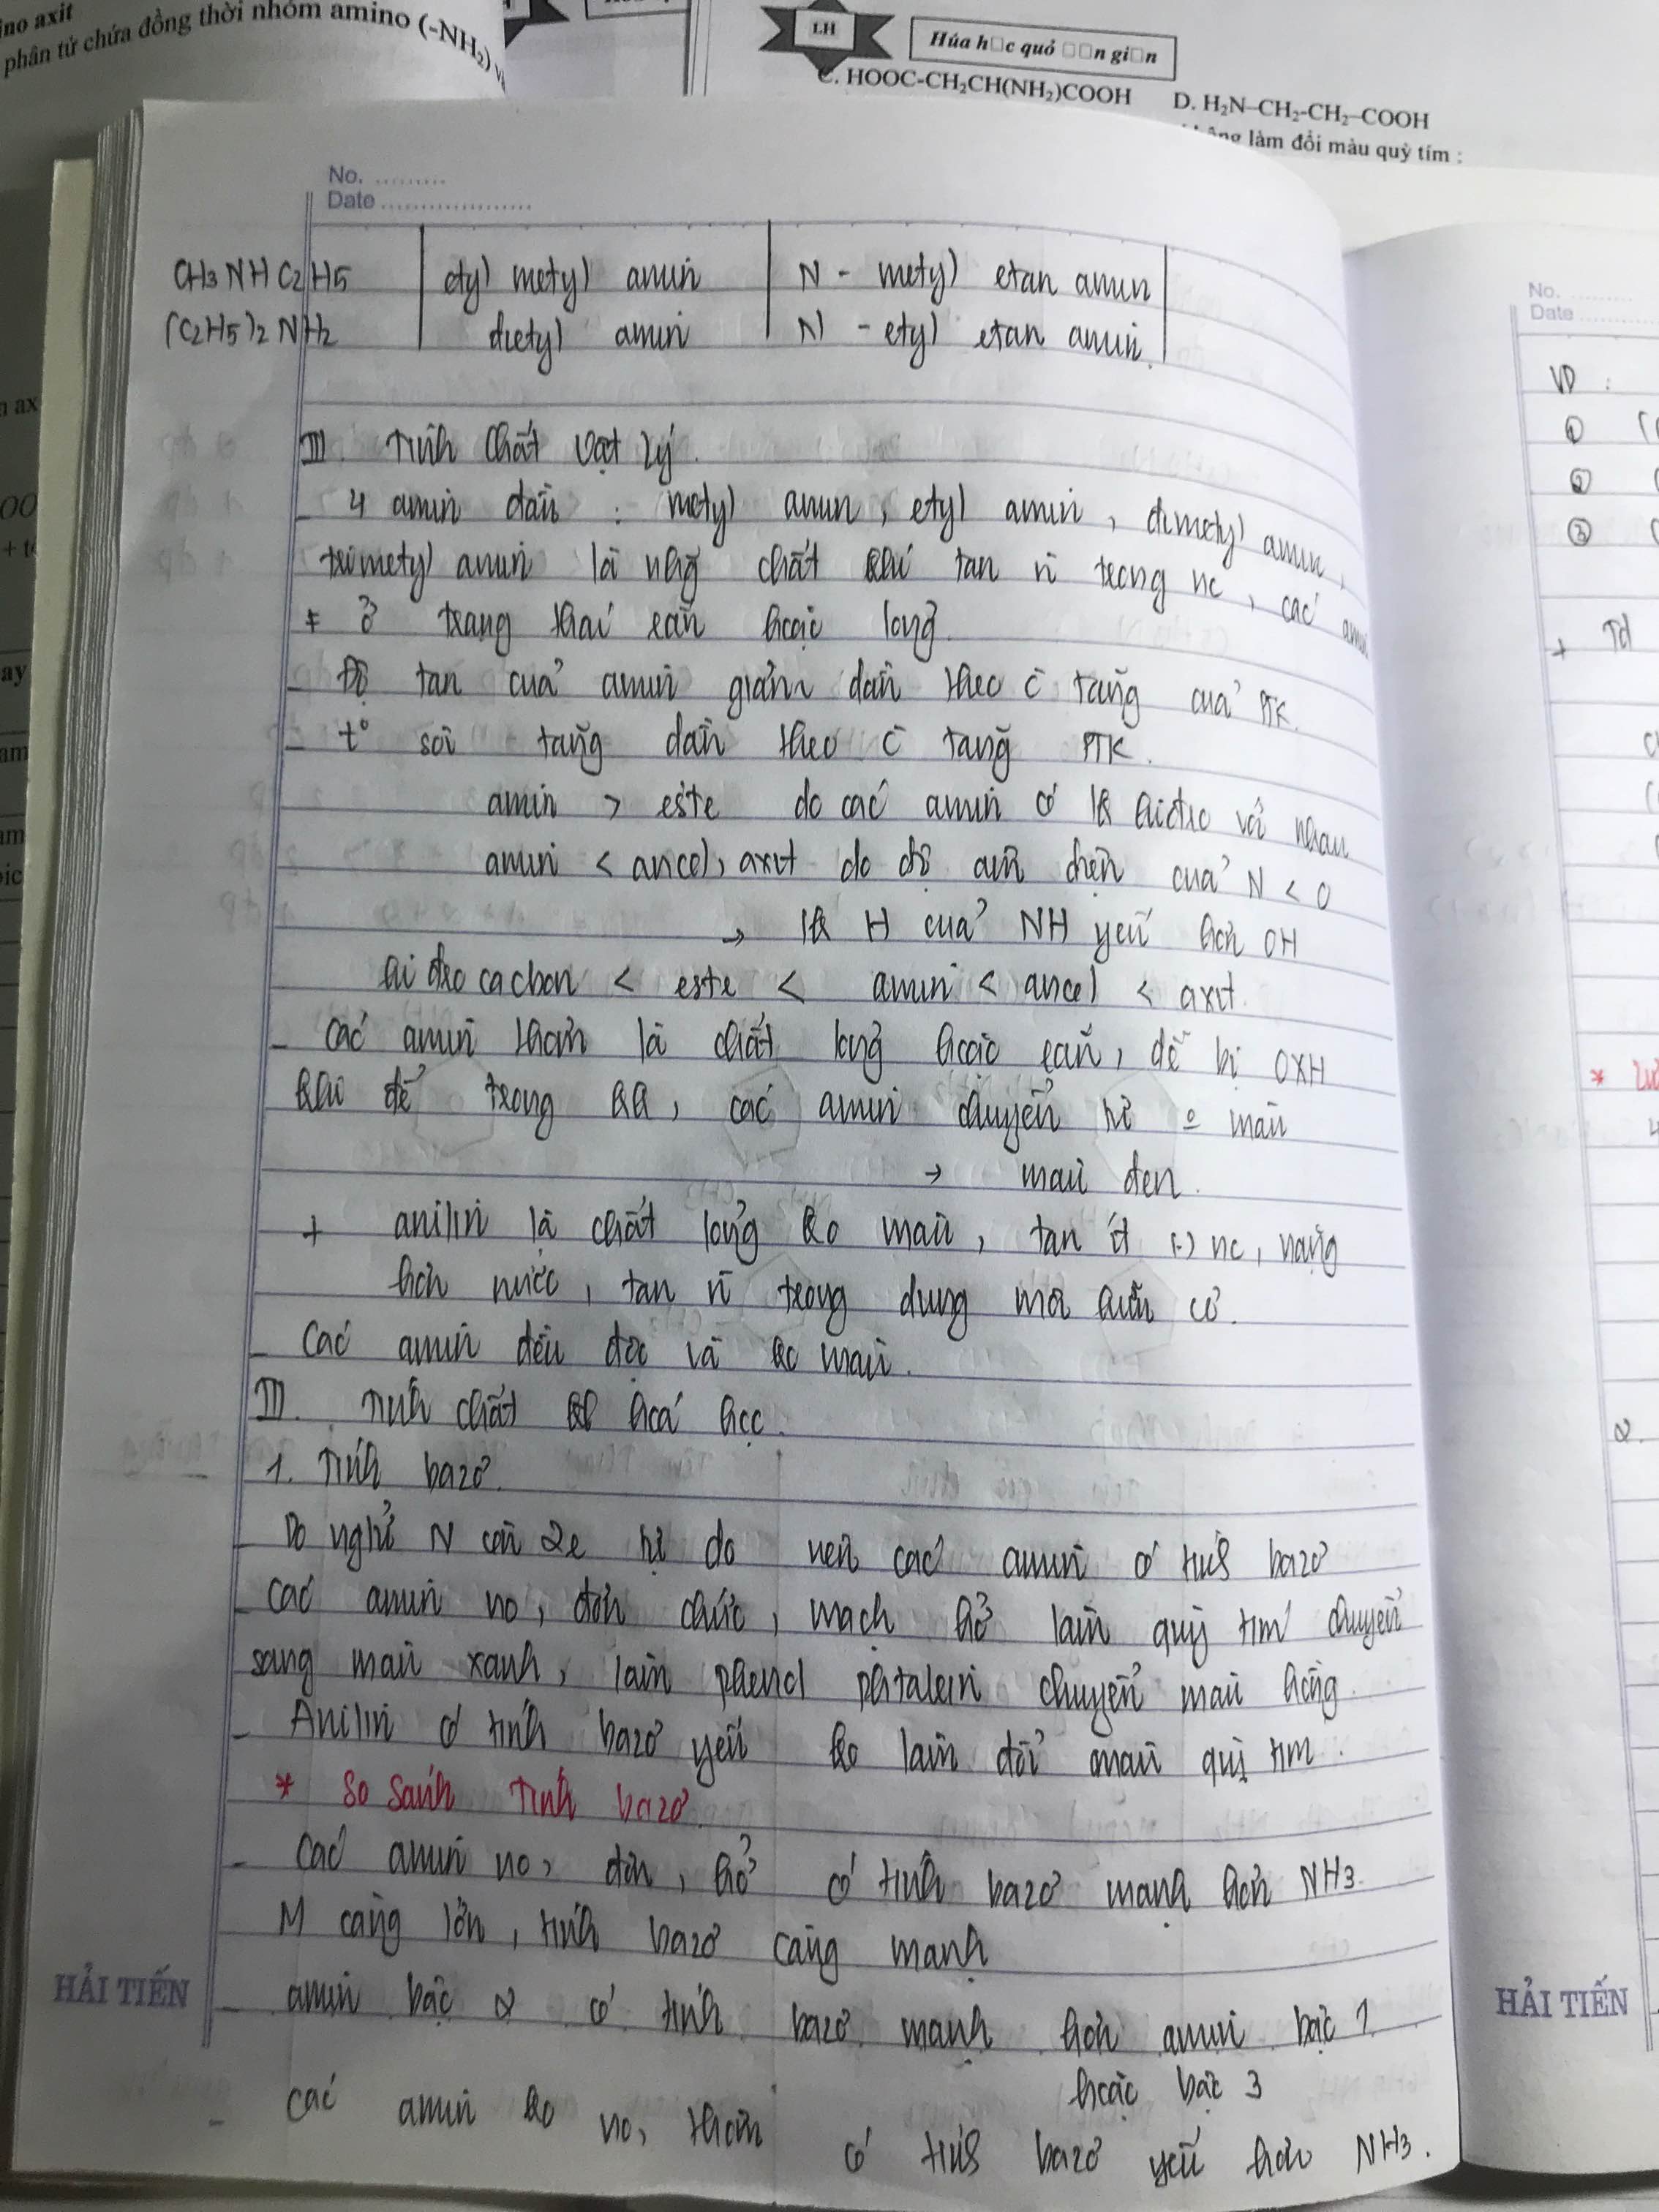 ino axit
phân tử chứa đồng thời nhóm amino (-NH₂)
LH
C. HOOC-CH₂CH(NH₂)COOH
D. H₂N–CH₂-CH₂–COOH
làm đổi màu quỳ tím :
No. .........
Date ....................
CH3 NH C2 H5 | etyl metyl amin | N - metyl etan amin
(C2H5)2 NH2 | đietyl amin | N - etyl etan amin
III. Tính chất vật lý.
- 4 amin đầu : metyl amin, etyl amin, đimetyl amin,
trimetyl amin là nhg chất khí tan n̄ trong nc, các amin
≠ ở trạng thái rắn hoặc lỏng.
- Độ tan của amin giảm dần theo c tăng của PTK.
- t° sôi tăng dần theo c tăng PTK.
amin > este do các amin có lk hiđro với nhau
amin < ancol, axit do độ âm điện của N < O
→ lk H của NH yếu hơn OH
hiđro cacbon < este < amin < ancol < axit.
- Các amin thơm là chất lỏng hoặc rắn, dễ bị OXH
khi để trong kk, các amin chuyển từ o màu
→ màu đen.
+ anilin là chất lỏng ko màu, tan ít (-) nc, nặng
hơn nước, tan n̄ trong dung môi hữu cơ.
- Các amin đều độc và ko màu.
III. Tính chất hoá học.
1. Tính bazơ.
- Do ngtử N còn 2e tự do nên các amin có tính bazơ
- Các amin no, đơn chức, mạch hở làm quỳ tím chuyển
sang màu xanh, làm phenol phtalein chuyển màu hồng.
- Anilin có tính bazơ yếu ko làm đổi màu quì tím.
* So sánh tính bazơ.
- Các amin no, đơn, hở có tính bazơ mạnh hơn NH3.
M càng lớn, tính bazơ càng mạnh
- amin bậc 2 có tính bazơ mạnh hơn amin bậc 1
hoặc bậc 3
- Các amin ko no, thơm có tính bazơ yếu hơn NH3.
HẢI TIẾN
No. ........
Date ........
VD :
①
②
③
+ Td
*
2.
HẢI TIẾN